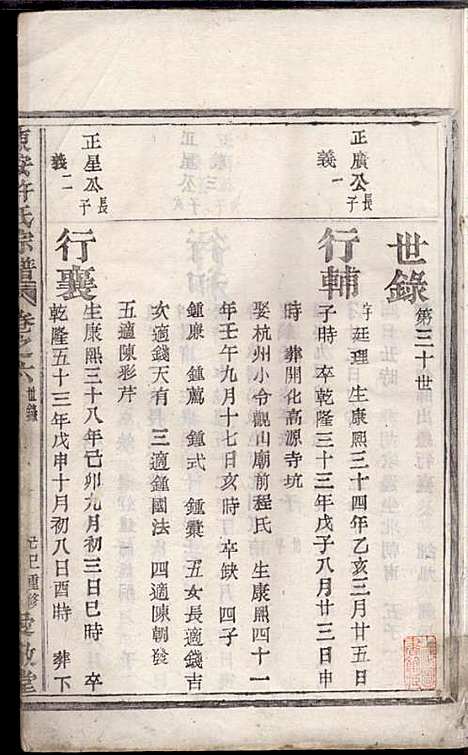 世錄 第三十世
正廣公長子
義一
行輔
字廷理 生康熙三十四年乙亥三月廿五日
子時 卒乾隆三十三年戊子八月廿三日申
時 葬開化高源寺坑
娶杭州小令觀山廟前程氏 生康熙四十一
年壬午九月十七日亥時 卒缺 四子
鍾康 鍾薦 鍾式 鍾櫐 五女長適錢吉
次適錢天有 三適鍾國法 四適陳朝發
五適陳彩芹
正星公長子
義二
行襄
生康熙三十八年己卯九月初三日巳時 卒
乾隆五十三年戊申十月初八日酉時 葬下
許氏宗譜 卷之六 世錄 己巳重修